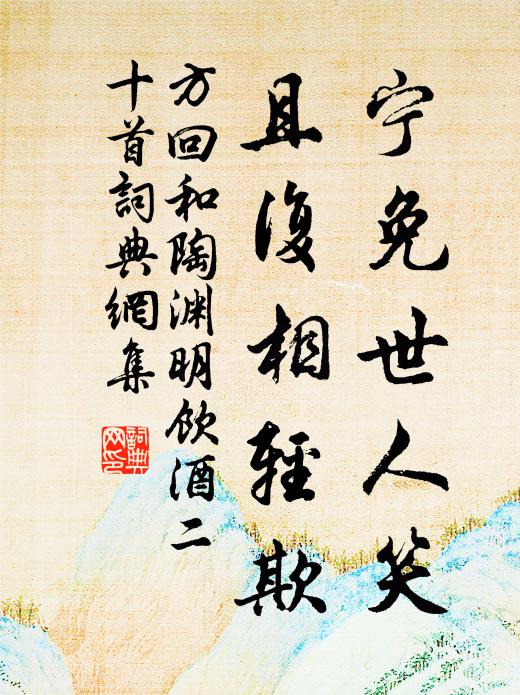 宁免世人笑
且复相轻欺
方回和陶渊明饮酒二
十首詞典網集
詞典
网印